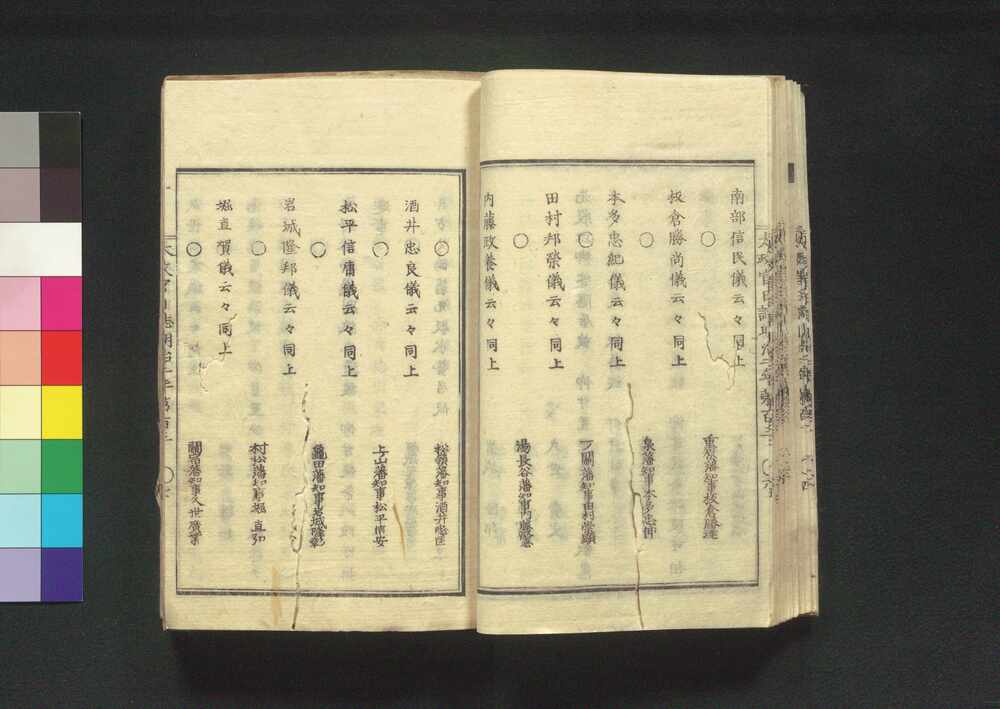 南部信民儀云々同上
○
重原藩知事板倉勝達
板倉勝尚儀云々同上
○
泉藩知事本多忠伸
本多忠紀儀云々同上
○
一關藩知事田村崇顯
田村邦榮儀云々同上
○
湯長谷藩知事内藤政憲
内藤政養儀云々同上
○
松嶺藩知事酒井忠匡
酒井忠良儀云々同上
○
上山藩知事松平信安
松平信庸儀云々同上
○
龜田藩知事岩城隆彰
岩城隆邦儀云々同上
○
村松藩知事堀直弘
堀直賀儀云々同上
○
關宿藩知事久世廣業